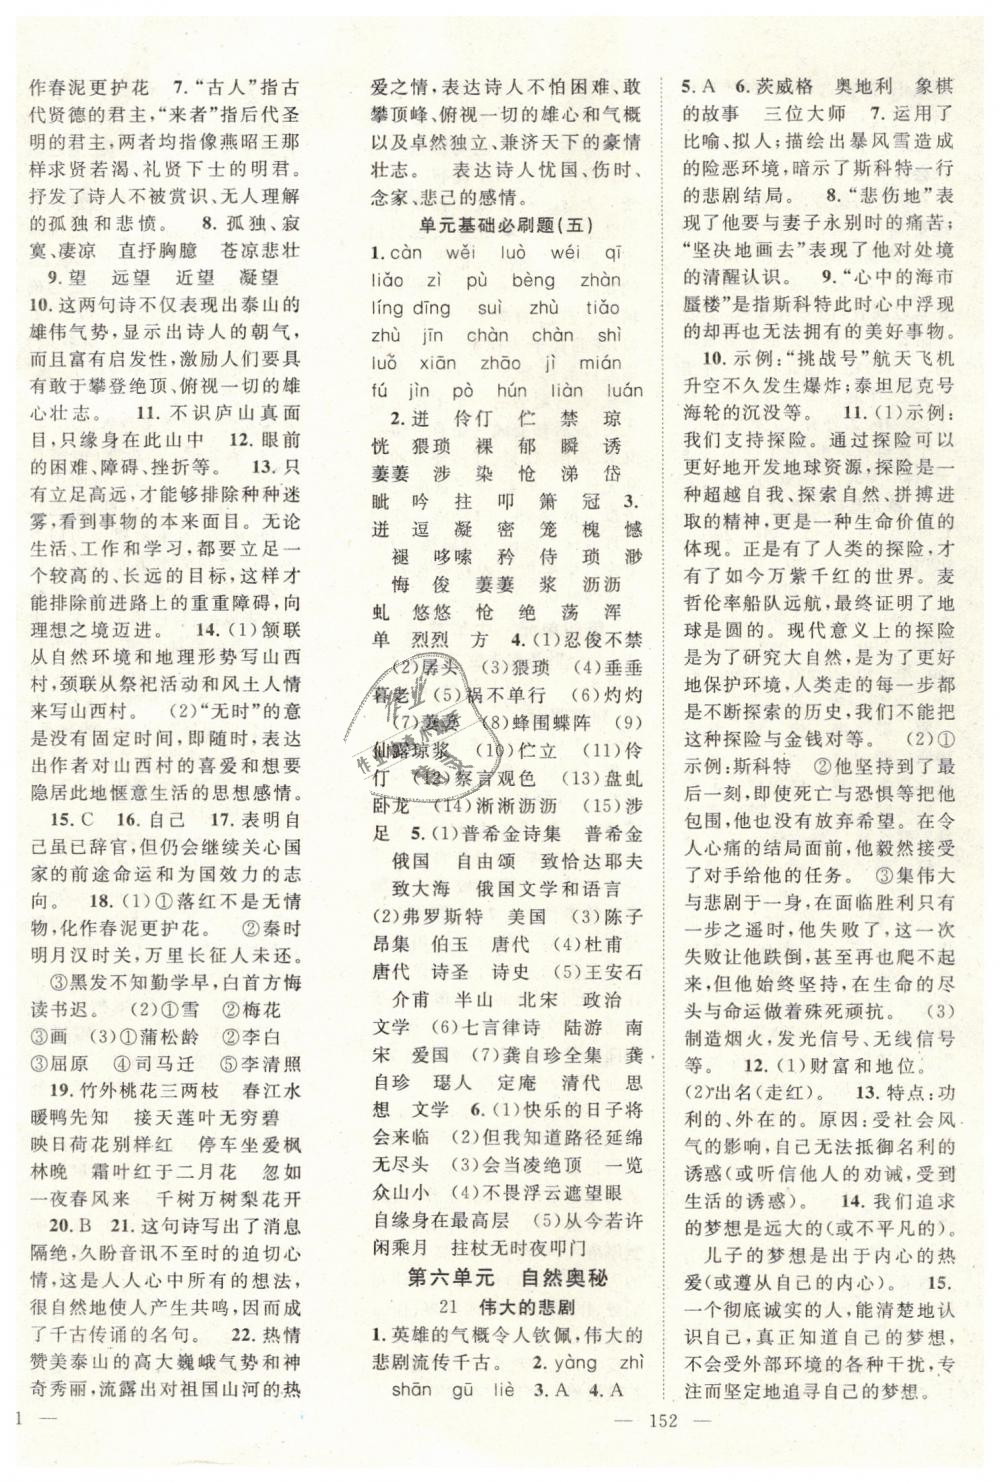 作春泥更护花　7. “古人”指古
代贤德的君主，“来者”指后代圣
明的君主，两者均指像燕昭王那
样求贤若渴、礼贤下士的明君。
抒发了诗人不被赏识、无人理解
的孤独和悲愤。　8. 孤独、寂
寞、凄凉　直抒胸臆　苍凉悲壮
9. 望　远望　近望　凝望
10. 这两句诗不仅表现出泰山的
雄伟气势，显示出诗人的朝气，
而且富有启发性，激励人们要具
有敢于攀登绝顶、俯视一切的雄
心壮志。　11. 不识庐山真面
目，只缘身在此山中　12. 眼前
的困难、障碍、挫折等。　13. 只
有立足高远，才能排除种种迷
雾，看到事物的本来面目。无论
生活、工作和学习，都要立足一
个较高的、长远的目标，这样才
能排除前进路上的重重障碍，向
理想之境迈进。　14. (1)颔联
从自然环境和地理形势写山西
村，颈联从祭祀活动和风土人情
来写山西村。　(2)“无时”的意
是没有固定时间，即随时，表达
出作者对山西村的喜爱和想要
隐居此地惬意生活的思想感情。
15. C　16. 自己　17. 表明自
己虽已辞官，但仍会继续关心国
家的前途命运和为国效力的志
向。　18. (1)①落红不是无情
物，化作春泥更护花。　②秦时
明月汉时关，万里长征人未还。
③黑发不知勤学早，白首方悔
读书迟。　(2)①雪　②梅花
③画　(3)①蒲松龄　②李白
③屈原　④司马迁　⑤李清照
19. 竹外桃花三两枝　春江水
暖鸭先知　接天莲叶无穷碧
映日荷花别样红　停车坐爱枫
林晚　霜叶红于二月花　忽如
一夜春风来　千树万树梨花开
20. B　21. 这句诗写出了消息
隔绝，久盼音讯不至的迫切心
情，这是人人心中所有的想法，
很自然地使人产生共鸣，因而成
了千古传诵的名句。　22. 热情
赞美泰山的高大巍峨气势和神
奇秀丽，流露出对祖国山河的热
1 —
爱之情，表达诗人不怕困难、敢
攀顶峰、俯视一切的雄心和气概
以及卓然独立、兼济天下的豪情
壮志。　表达诗人忧国、伤时、
念家、悲己的感情。
单元基础必刷题(五)
1. càn　wěi　luò　wéi　qī
liáo　zì　pù　bèng　zhàn
líng dīng　suì　zhù　tiǎo
zhù　jīn　chàn　chàn　shì
luǒ　xiān　zhāo　jì　mián
fú　jìn　pò　hún　liàn　luán
2. 迸　伶仃　伫　禁　琼
恍　猥琐　裸　郁　瞬　诱
萋萋　涉　染　怆　涕　岱
眦　吟　拄　叩　箫　冠　3.
迸　逗　凝　密　笼　槐　憾
褪　哆嗦　矜　侍　琐　渺
悔　俊　萋萋　浆　沥沥
虬　悠悠　怆　绝　荡　浑
单　烈烈　方　4. (1)忍俊不禁
(2)孱头　(3)猥琐　(4)垂垂
暮老　(5)祸不单行　(6)灼灼
(7)萋萋　(8)蜂围蝶阵　(9)
仙露琼浆　(10)伫立　(11)伶
仃　(12)察言观色　(13)盘虬
卧龙　(14)淅淅沥沥　(15)涉
足　5. (1)普希金诗集　普希金
俄国　自由颂　致恰达耶夫
致大海　俄国文学和语言
(2)弗罗斯特　美国　(3)陈子
昂集　伯玉　唐代　(4)杜甫
唐代　诗圣　诗史　(5)王安石
介甫　半山　北宋　政治
文学　(6)七言律诗　陆游　南
宋　爱国　(7)龚自珍全集　龚
自珍　璱人　定庵　清代　思
想　文学　6. (1)快乐的日子将
会来临　(2)但我知道路径延绵
无尽头　(3)会当凌绝顶　一览
众山小　(4)不畏浮云遮望眼
自缘身在最高层　(5)从今若许
闲乘月　拄杖无时夜叩门
第六单元　自然奥秘
21　伟大的悲剧
1. 英雄的气概令人钦佩，伟大的
悲剧流传千古。　2. yàng　zhì
shān　gū　liè　3. A　4. A
5. A　6. 茨威格　奥地利　象棋
的故事　三位大师　7. 运用了
比喻、拟人；描绘出暴风雪造成
的险恶环境，暗示了斯科特一行
的悲剧结局。　8. “悲伤地”表
现了他要与妻子永别时的痛苦；
“坚决地画去”表现了他对处境
的清醒认识。　9. “心中的海市
蜃楼”是指斯科特此时心中浮现
的却再也无法拥有的美好事物。
10. 示例：“挑战号”航天飞机
升空不久发生爆炸；泰坦尼克号
海轮的沉没等。　11. (1)示例：
我们支持探险。通过探险可以
更好地开发地球资源，探险是一
种超越自我、探索自然、拼搏进
取的精神，更是一种生命价值的
体现。正是有了人类的探险，才
有了如今万紫千红的世界。麦
哲伦率船队远航，最终证明了地
球是圆的。现代意义上的探险
是为了研究大自然，是为了更好
地保护环境，人类走的每一步都
是不断探索的历史，我们不能把
这种探险与金钱对等。　(2)①
示例：斯科特　②他坚持到了最
后一刻，即使死亡与恐惧等把他
包围，他也没有放弃希望。在令
人心痛的结局面前，他毅然完成
了对手给他的任务。　③集伟大
与悲剧于一身，在面临胜利只有
一步之遥时，他失败了，这一次
失败让他跌倒，甚至再也爬不起
来，但他始终坚持，在生命的尽
头与命运做着殊死顽抗。　(3)
制造烟火，发光信号、无线信号
等。　12. (1)财富和地位。
(2)出名(走红)。　13. 特点：功
利的、外在的。原因：受社会风
气的影响，自己无法抵御名利的
诱惑(或听信他人的劝诫，受到
生活的诱惑)。　14. 我们追求
的梦想是远大的(或不平凡的)。
儿子的梦想是出于内心的热
爱(或遵从自己的内心)。　15.
一个彻底诚实的人，能清楚地认
识自己，真正知道自己的梦想，
不会受外部环境的各种干扰，专
注而坚定地追寻自己的梦想。
— 152 —